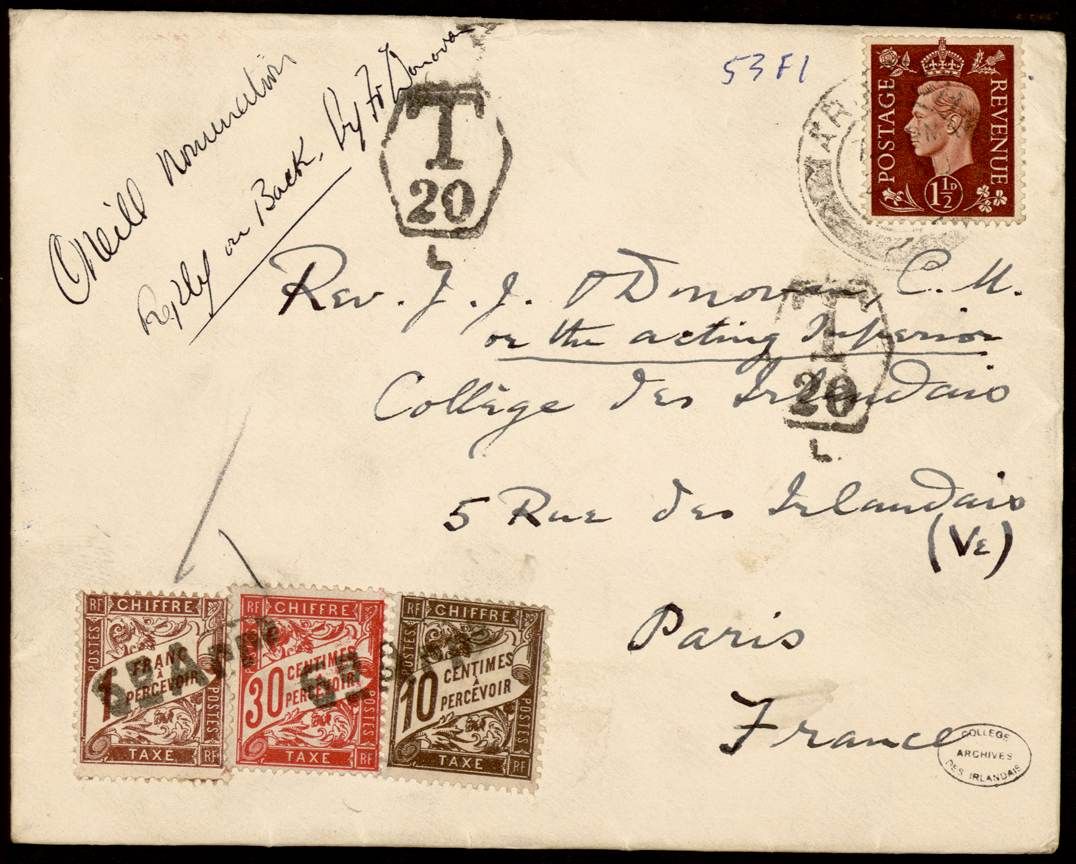 O'Neill Nomination
Reply on Back. By Fr Donovan
T
20
L
53 F1
POSTAGE REVENUE
1½D
Rev. J. J. O'Donovan, C.M.
or the acting Superior
T
20
L.
Collège des Irlandais
5 Rue des Irlandais
(Ve)
Paris
France
COLLEGE
ARCHIVES
DES IRLANDAIS
RF CHIFFRE
POSTES
1 FRANC
À
PERCEVOIR
POSTES
TAXE RF
RF CHIFFRE
POSTES
30 CENTIMES
À
PERCEVOIR
POSTES
TAXE RF
RF CHIFFRE
POSTES
10 CENTIMES
À
PERCEVOIR
POSTES
TAXE RF